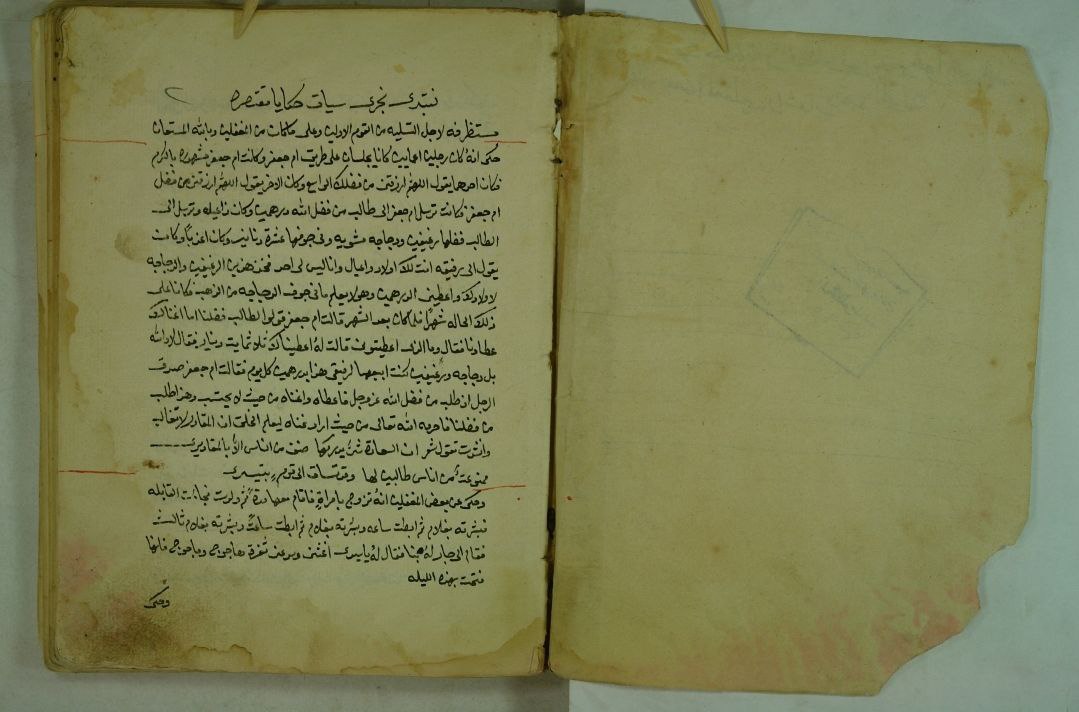 نبتدى نجرى سياق حكايا مقتصره
مستظرفه لاجل التسليه من القوم الاولين وعلى حكايات من المغفلين وبالله المستعان
حكى انه كان رجلين اعمايين كانا يجلسان على طريق ام جعفر وكانت ام جعفر مشهوره بالكرم
فكان احدهما يقول اللهم ارزقنى من فضلك الواسع وكان الاخر يقول اللهم ارزقنى من فضل
ام جعفر فكانت ترسل ام جعفر الى طالب من فضل الله درهمين وكان ذا عيله وترسل الى
الطالب فضلها رغيفين ودجاجه مشويه وفى جوفها عشرة دنانير وكان اعزباً وكانت
يقول الى رفيقه انت لك اولاد واعيال وانا ليس لى احد فخذ هذين الرغيفين والدجاجه
لاولادك واعطينى الدرهمين وهو لا يعلم ما فى جوف الدجاجه من الذهب فكانا على
ذلك الحاله شهرًا فلما كان بعد الشهر قالت ام جعفر قولوا لطالب فضلنا اما اغناك
عطاونا فقال وما الذى اعطيتونى قالت له اعطيناك ثلاثمايت دينار فقال لا والله
بل دجاجه ورغيفين كنت ابيعها لرفيقى هذا بدرهمين كل يوم فقالت ام جعفر صدق
الرجل اذ طلب من فضل الله عز وجل فاعطاه واغناه من حيث لا يحتسب وهذا طلب
من فضلنا فاحرمه الله تعالى من حيث اراد غناه ليعلم الخلق ان المقادير لا تغالب
وانشدت تقول شعر ان السعادة شئ يدركها صنف من الناس الا بالمقاديرى
ممنوعة من اناس طالبين لها وقد تساق الى قوم بتيسيرى
وحكى عن بعض المغفلين انه تزوج بامراةٍ فاقام معها مدة ثم ولدت فجائت القابله
فبشرته بغلام ثم ابطت ساعه وبشرته بغلام ثم ابطت ساعةً وبشرته بغلام ثالث
فقام الى جار له فقال له يا سيدى اغثنى ياجوج وماجوج
فتحت بهذه الليله
وحكى